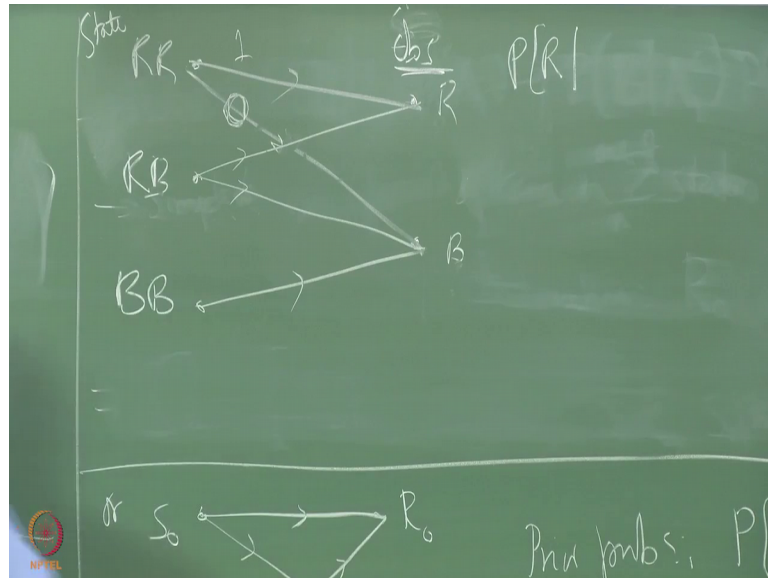 State
RR 1 Obs P[R|
0 R
RB
B
BB
=
or S₀ R₀ Prior probs; P[
NPTEL